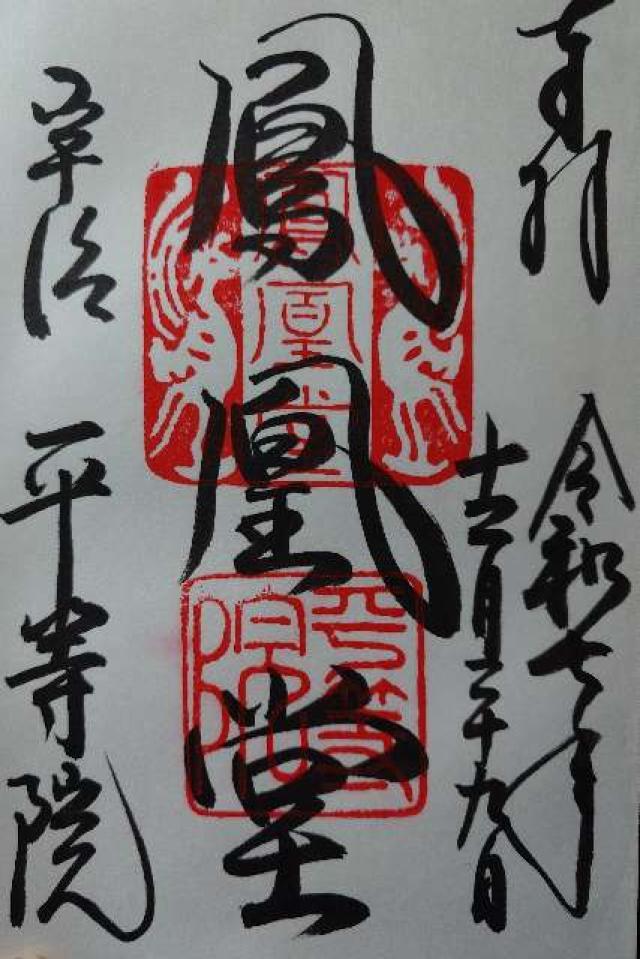 奉拝
令和七年
十二月二十九日
鳳凰堂
宇治
平等院
鳳凰堂
平等
院